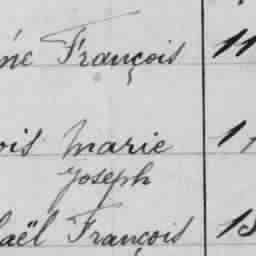 né François 11
ois Marie 1
Joseph
aël François 13